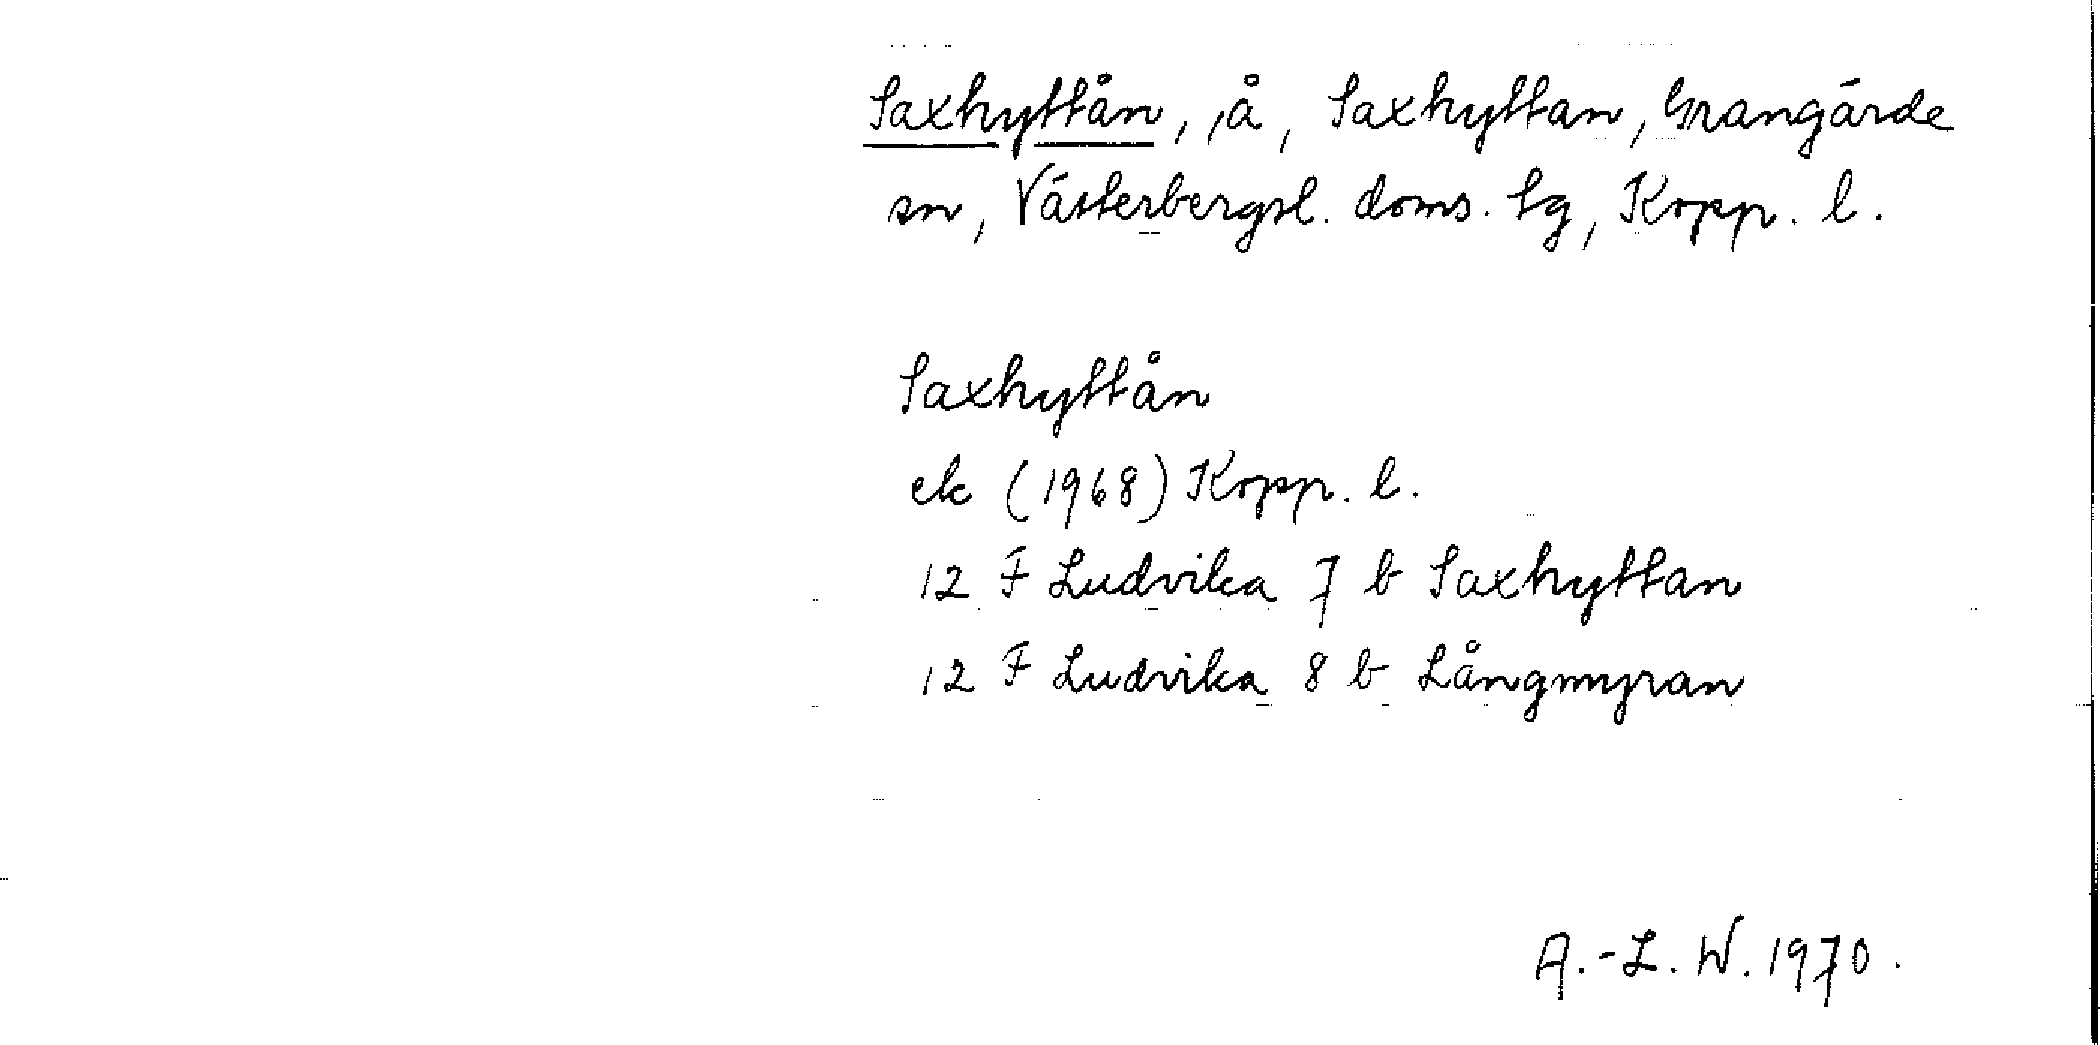 Saxhyttån, å, Saxhyttan, Grangärde
sn, Västerbergsl. doms. tg, Kopp. l.
Saxhyttån
ek (1968) Kopp. l.
12 F Ludvika 7 b Saxhyttan
12 F Ludvika 8 b Långmyran
A.-L. W. 1970.